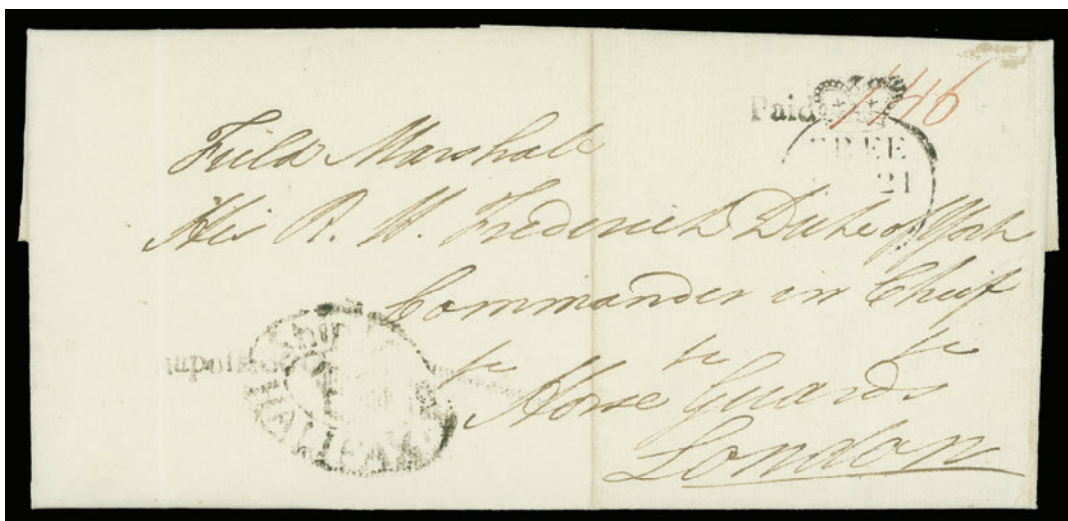 Paid 1/1/6
FREE
21
Field Marshall
His R. H. Frederick Duke of York
Commander in Chief
Horse Guards
London